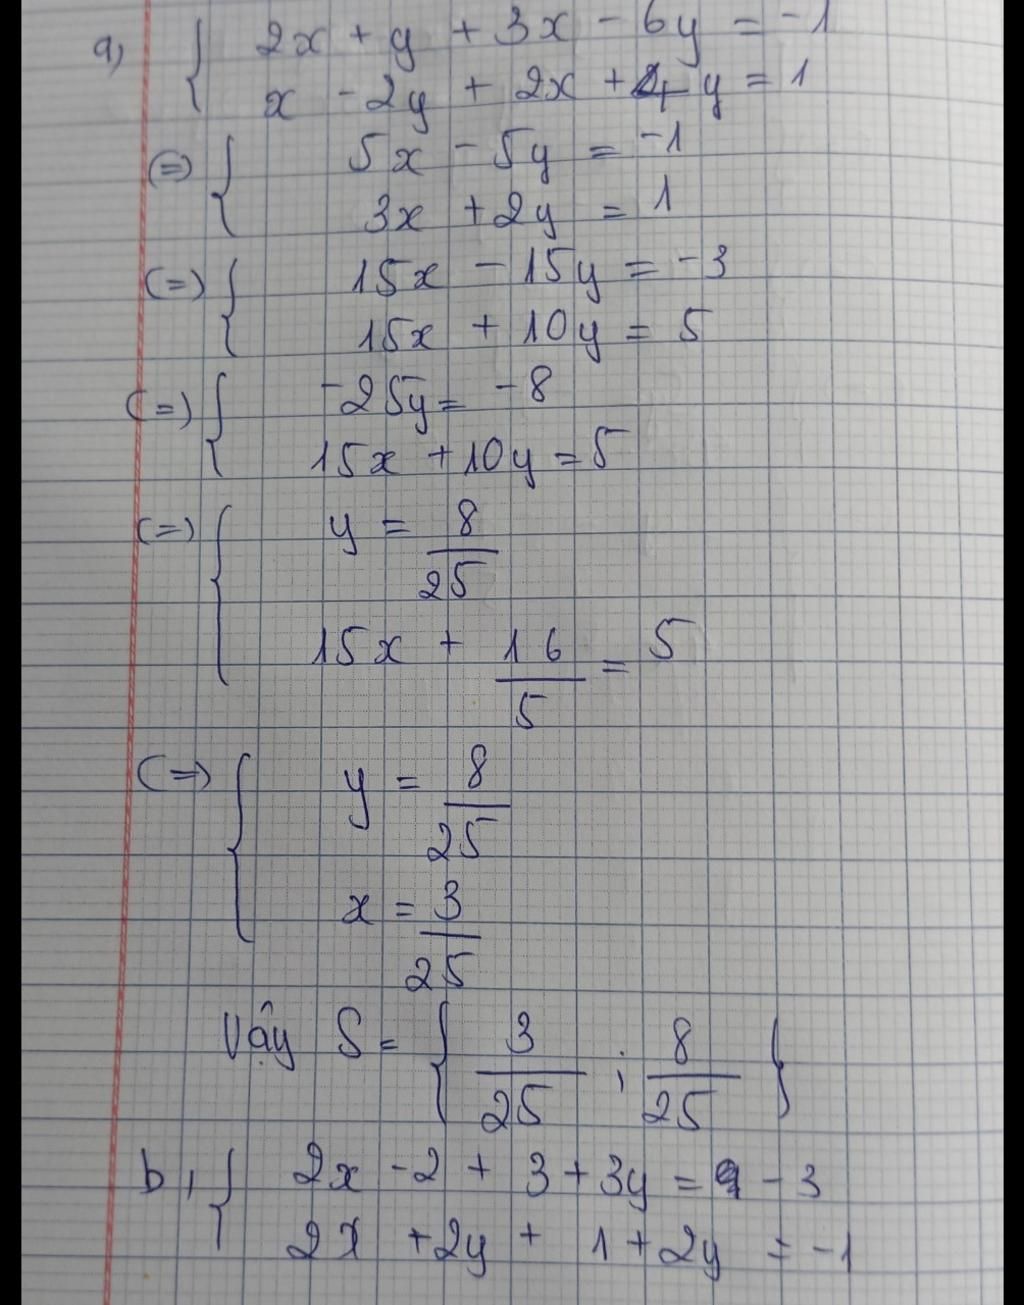 a, { 2x + y + 3x - 6y = -1
x - 2y + 2x + 4y = 1
(=) { 5x - 5y = -1
3x + 2y = 1
(=) { 15x - 15y = -3
15x + 10y = 5
(=) { -25y = -8
15x + 10y = 5
(=) { y = 8/25
15x + 16/5 = 5
(=) { y = 8/25
x = 3/25
Vậy S = { 3/25 ; 8/25 }
b, { 2x - 2 + 3 + 3y = - 3
2x + 2y + 1 + 2y = -1